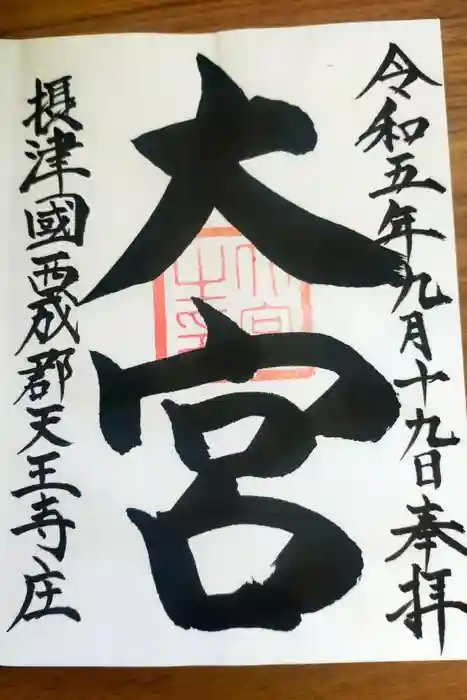 令和五年九月十九日奉拝
大宮
摂津國西成郡天王寺庄